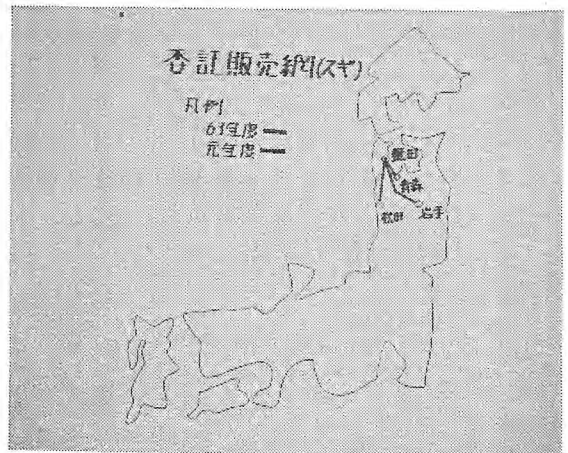 委託販売網(スギ)
凡例
63年度
元年度
青森
秋田 岩手